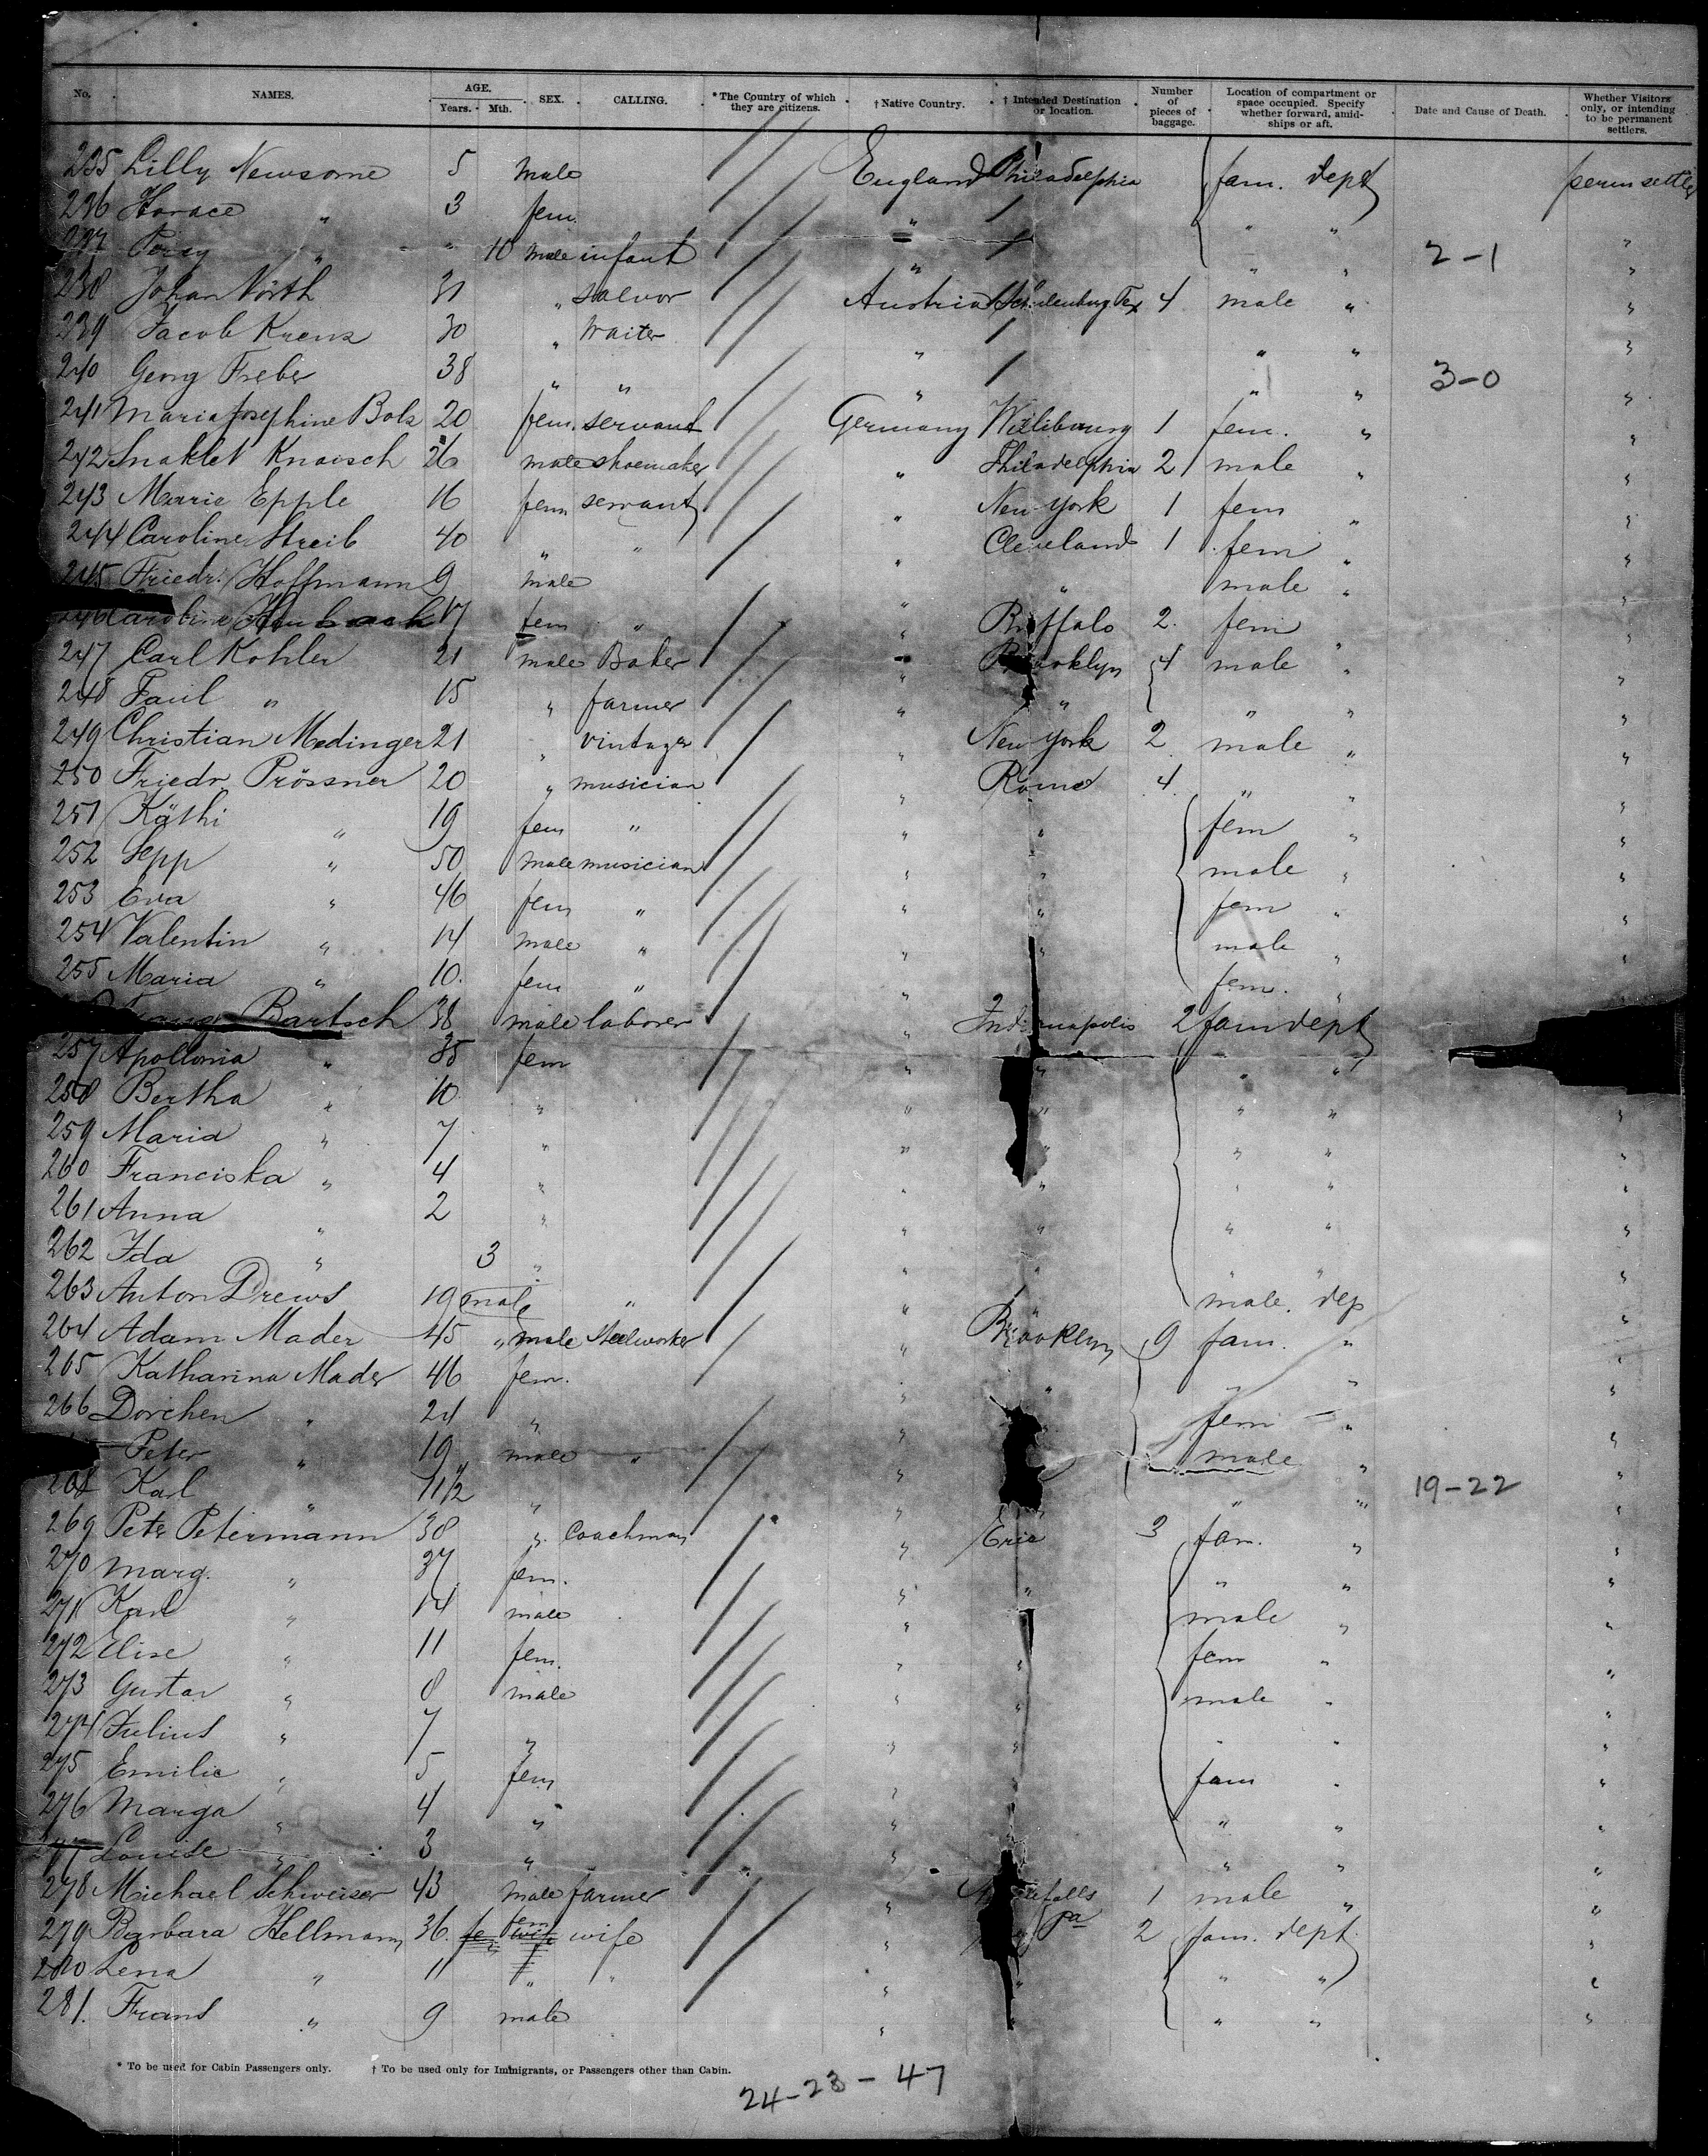 No. NAMES. AGE. Years. Mth. SEX. CALLING. *The Country of which they are citizens. †Native Country. † Intended Destination or location. Number of pieces of baggage. Location of compartment or space occupied. Specify whether forward, amidships or aft. Date and Cause of Death. Whether Visitors only, or intending to be permanent settlers.
235 Lilly Newsome 5 male England Philadelphia fam. dept perm settler
236 Horace " 3 fem. " " "
237 Percy " " 10 male infant " " " 2-1 "
238 Johan 31 " Austria Schulenburg Tex 4 male " "
239 Jacob Krenz 30 " Waiter " " " "
240 Georg Freber 38 " " " " " 3-0 "
241 Maria Josephine Bolz 20 fem. servant Germany 1 fem. " "
242 Knaisch 26 male shoemaker " Philadelphia 2 male " "
243 Marie Epple 16 fem servant " New York 1 fem " "
244 Caroline Streib 40 " " " Cleveland 1 fem " "
245 Friedr. Hoffmann 9 male " " male " "
246 Caroline 17 fem " " Buffalo 2. fem " "
247 Carl Kohler 21 male Baker " Brooklyn 4 male " "
248 Paul " 15 " farmer " " " " "
249 Christian Medinger 21 " vintager " New York 2 male " "
250 Friedr. Prössner 20 " musician " Rome 4 " " "
251 Käthi " 19 fem " " " fem " "
252 Sepp " 50 male musician " " male " "
253 Eva " 46 fem " " " fem " "
254 Valentin " 14 male " " " male " "
255 Maria " 10. fem " " fem. " "
Bartsch 38 male laborer " Indianapolis 2 fam dept
257 Apollonia " 35 fem " " " "
258 Bertha " 10 " " " " " "
259 Maria " 7 " " " " " "
260 Franciska " 4 " " " " " "
261 Anna " 2 " " " " " "
262 Ida " 3 " " " " " "
263 Anton Drews 19 male " " " male. dep "
264 Adam Mader 45 " male Steelworker " Brooklyn 9 fam. " "
265 Katharina Mader 46 fem. " " " " "
266 Dorchen " 24 " " fem " "
Peter " 19 male " " male " "
268 Karl " 11 1/2 " " " " " 19-22 "
269 Peter Petermann 38 " Coachman " Erie 3 fam. " "
270 Marg. " 37 fem. " " " " "
271 Karl " 14 male " male " "
272 Elise " 11 fem. " " fem " "
273 Gustav " 8 male " " male " "
274 Julius " 7 " " " " " "
275 Emilie " 5 fem " fam " "
276 Marga " 4 " " " " "
277 Louise " 3 " " " " "
278 Michael Schweizer 43 male farmer " falls Pa 1 male " "
279 Barbara Hellmann 36. fem wife " 2 fam. dept "
280 Lena " 11 " " " " " " "
281. Franz " 9 male " " " " "
* To be used for Cabin Passengers only. † To be used only for Immigrants, or Passengers other than Cabin.
24-23-47